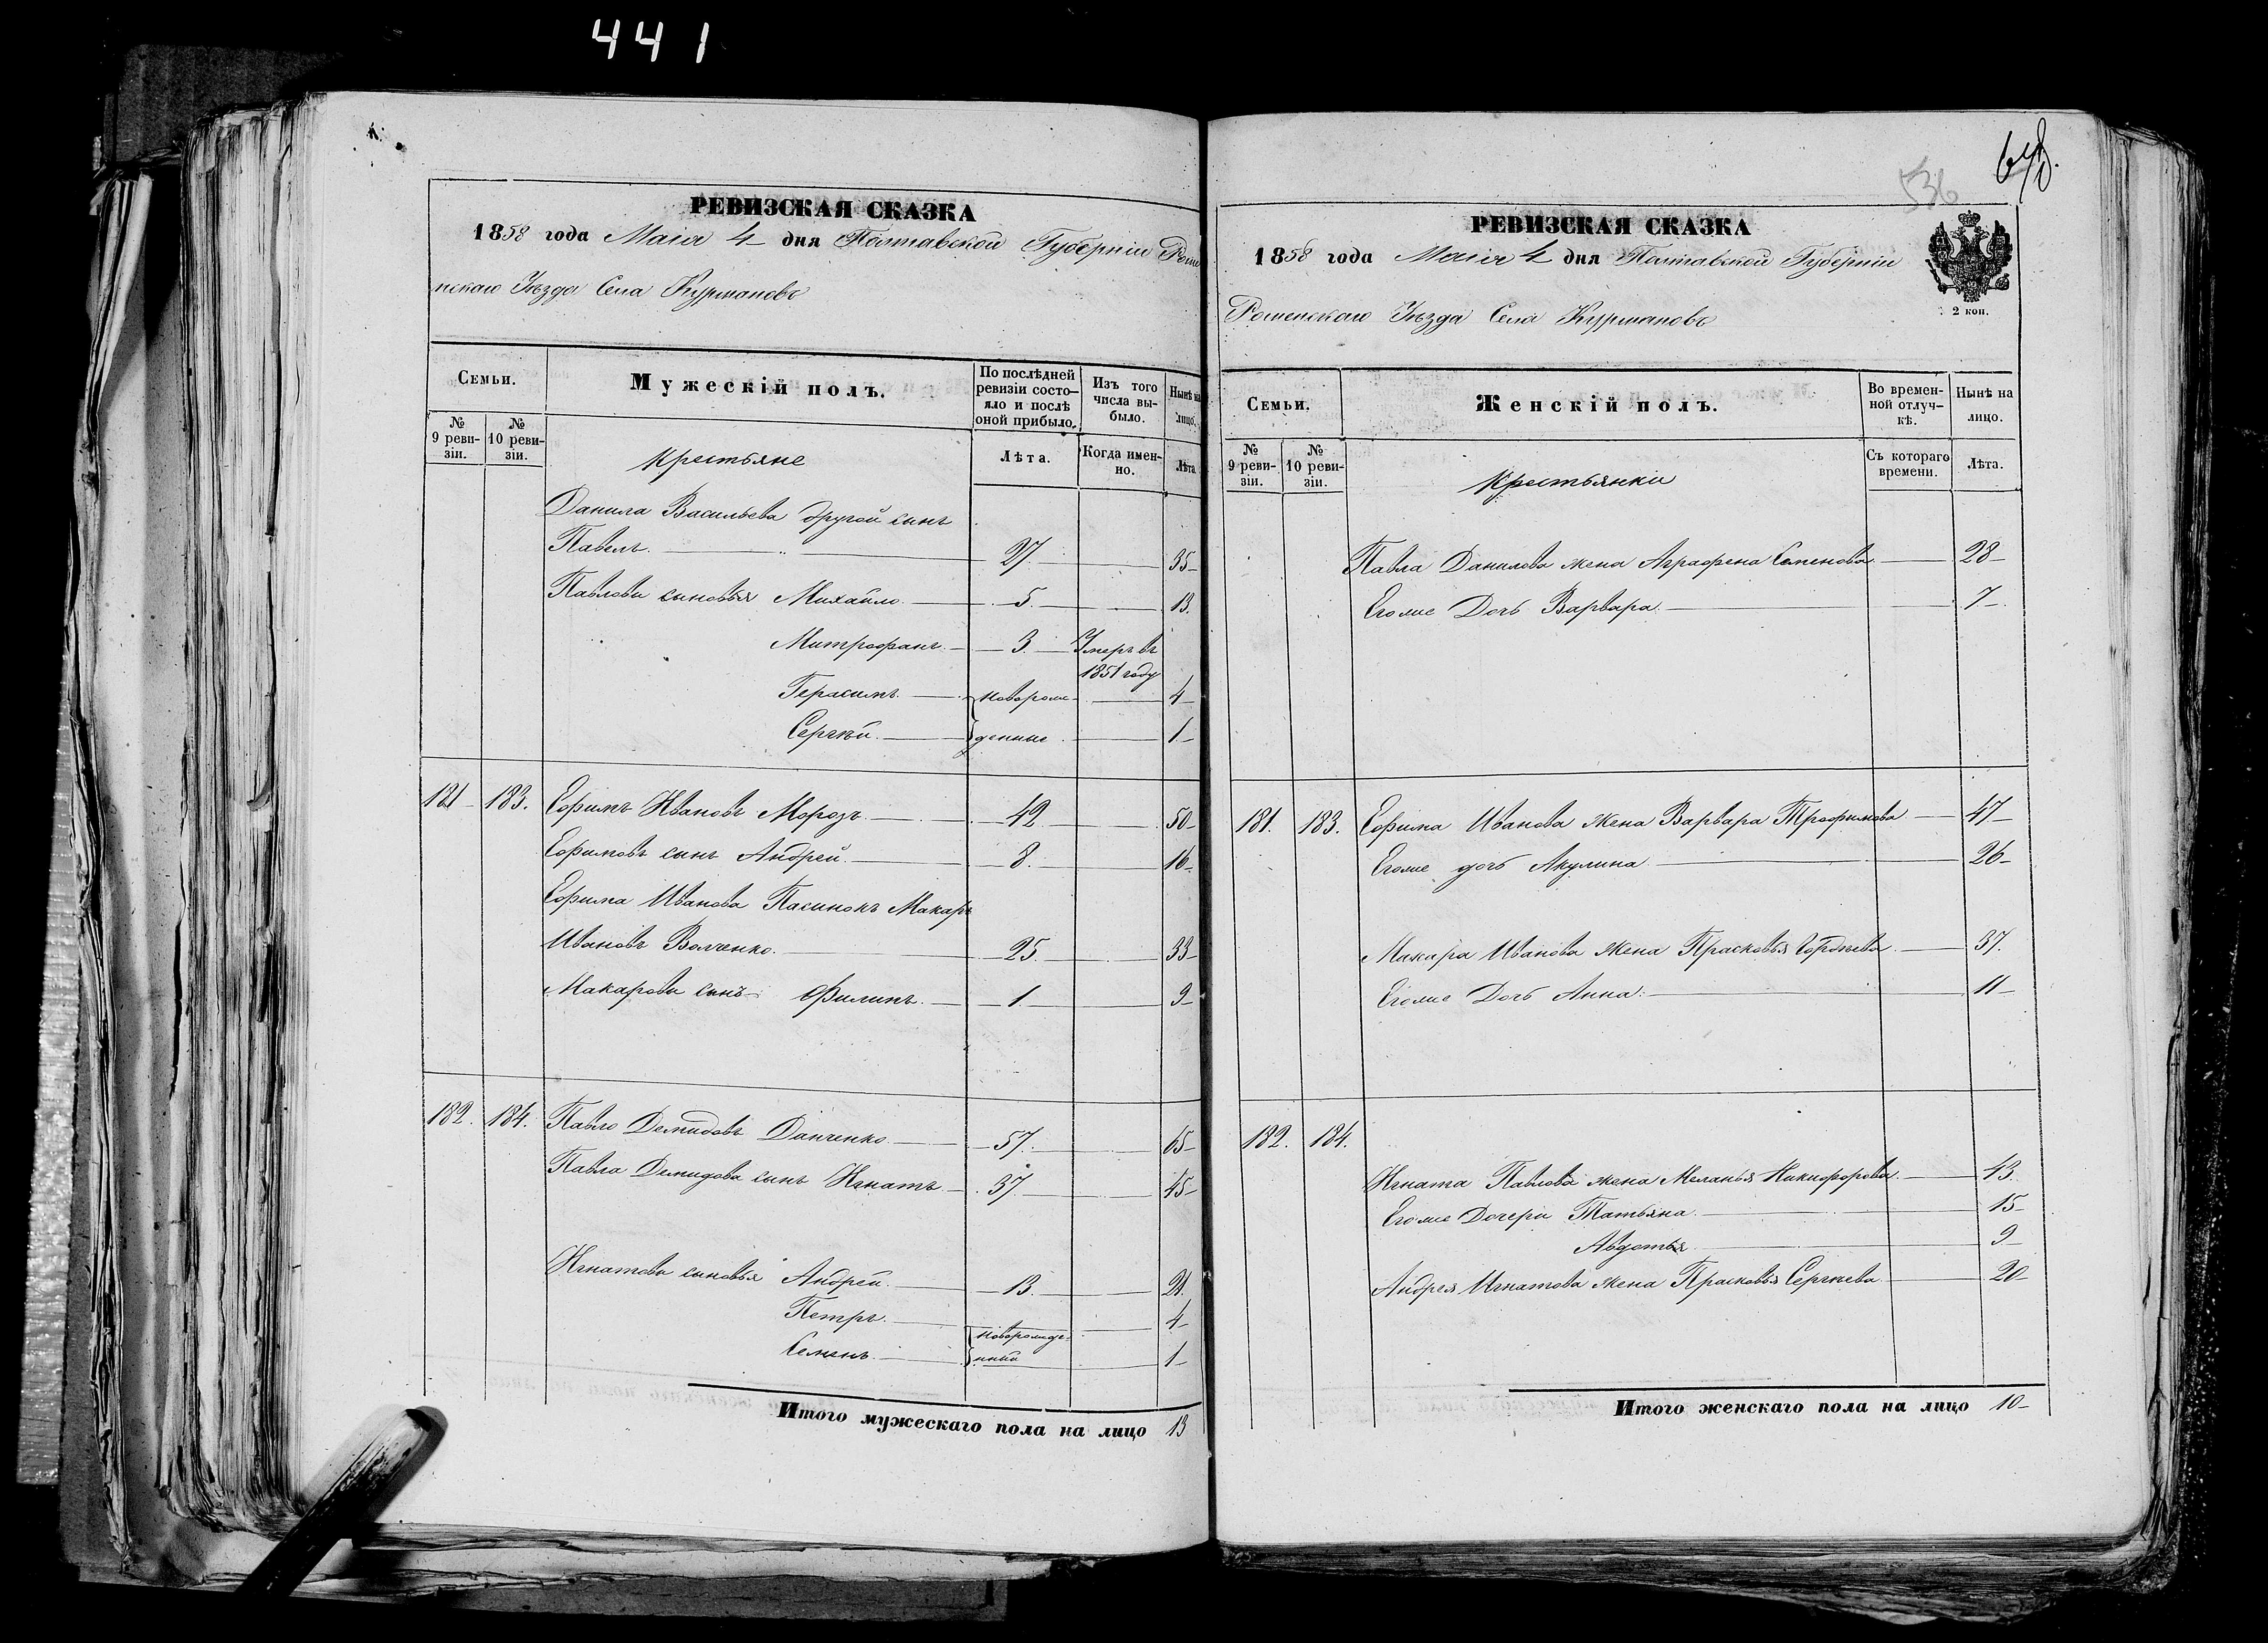 441
РЕВИЗСКАЯ СКАЗКА
1858 года Маія 4 дня Полтавской Губерніи Роме
нскаго Уѣзда Села Курмановъ
Семьи.
Мужескій полъ.
По послѣдней ревизіи состо-
яло и послѣ оной прибыло.
Изъ того числа вы-
было.
Нынѣ на лицо.
№ 9 реви-
зіи.
№ 10 реви-
зіи.
Крестьяне
Лѣта.
Когда имен-
но.
Лѣта.
Данила Васильева другой сынъ
Павелъ. 27. 35
Павловы сыновья Михайло 5. 13.
Митрофанъ. 3. Умеръ въ
1851 году
Герасимъ. новорож 4
Сергѣй. денные 1
181 183. Ефимъ Ивановъ Морозъ 42 50
Ефимовъ сынъ Андрей. 8. 16
Ефима Иванова Пасинокъ Макаръ
Ивановъ Волченко. 25. 33
Макаровъ сынъ Филипъ. 1. 9
182. 184. Павло Демидовъ Данченко 57. 65
Павла Демидова сынъ Игнатъ 37. 45
Игнатовы сыновья Андрей. 13. 21
Петръ. новорожде- 4
Семенъ. нные 1
Итого мужескаго пола на лицо 13
536
РЕВИЗСКАЯ СКАЗКА
1858 года Маія 4 дня Полтавской Губерніи
2 коп.
Роменскаго Уѣзда Села Курмановъ
Семьи.
Женскій полъ.
Во времен-
ной отлуч-
кѣ.
Нынѣ на лицо.
№ 9 реви-
зіи.
№ 10 реви-
зіи.
Крестьянки
Съ котораго времени.
Лѣта.
Павла Данилова жена Аграфена Семенова 28
Егоже Дочь Варвара. 7
181. 183. Ефима Иванова жена Варвара Трофимова 47
Егоже дочь Акулина 26
Макара Иванова жена Прасковья Гордѣева 37.
Егоже Дочь Анна. 11
182. 184.
Игната Павлова жена Меланья Никифорова 43.
Егоже Дочери Татьяна. 15
Авдотья 9
Андрея Игнатова жена Прасковья Сергѣева 20
Итого женскаго пола на лицо 10